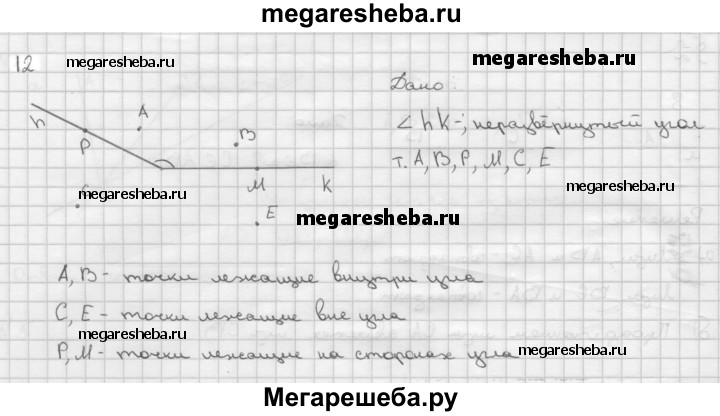 megaresheba.ru
12 megaresheba.ru
megaresheba.ru
Дано:
∠hk-; неразвёрнутый угол
т. A, B, P, M, C, E
h
P
A
B
M
k
E
megaresheba.ru
megaresheba.ru
megaresheba.ru
A, B - точки лежащие внутри угла
C, E - точки лежащие вне угла
megaresheba.ru
P, M - точки лежащие на сторонах угла
megaresheba.ru
Мегарешеба.ру